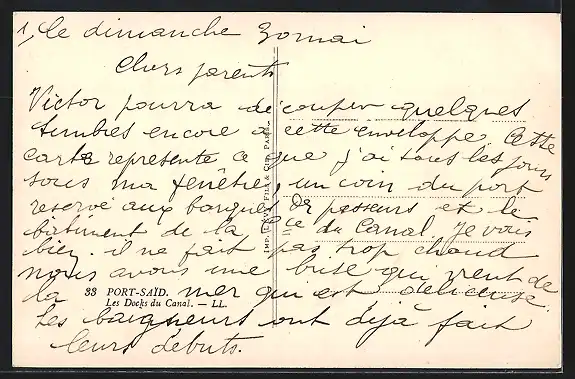 1, le dimanche 30 mai
Chers parents
Victor pourra découper quelques
timbres encore à cette enveloppe. Cette
carte représente ce que j'ai tous les jours
sous ma fenêtre, un coin du port
reservé aux barques de passeurs et le
bâtiment de la Cie du Canal. Je vais
bien. il ne fait pas trop chaud
nous avons une brise qui vient de
la mer qui est délicieuse.
Les baigneurs ont déjà fait
leurs débuts.
33 PORT-SAÏD.
Les Docks du Canal. — LL.
IMP. LÉVY FILS & CIE PARIS